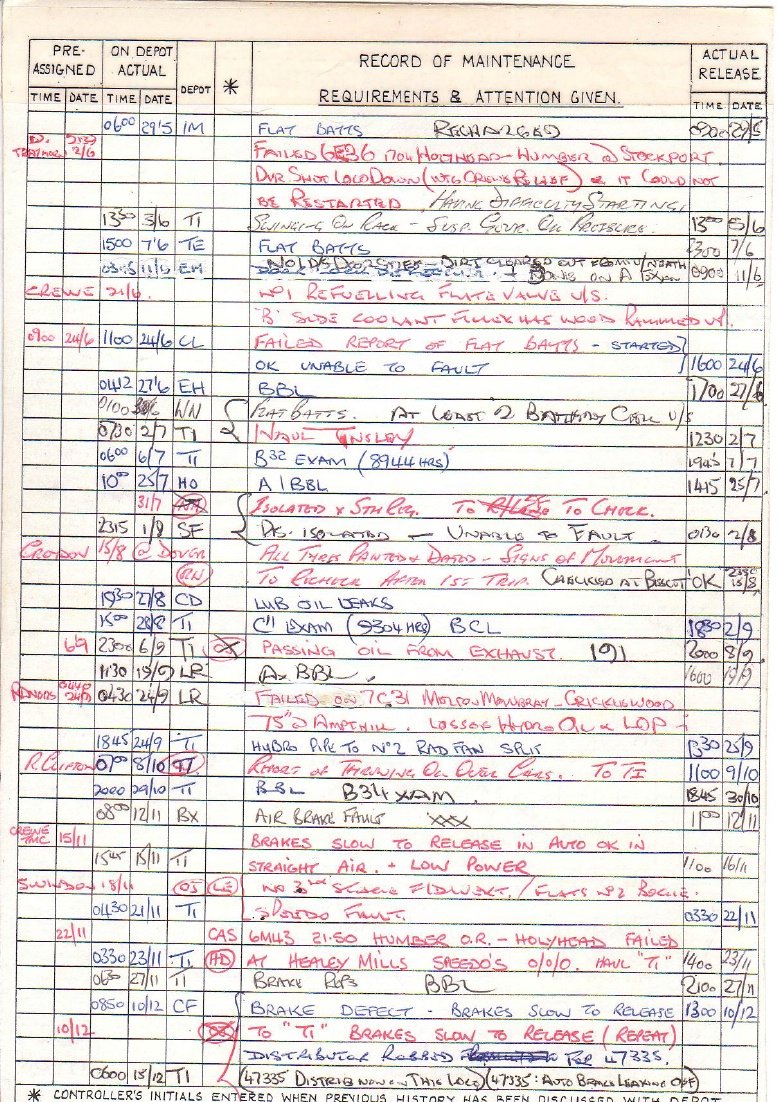 PRE-ASSIGNED ON DEPOT ACTUAL DEPOT * RECORD OF MAINTENANCE REQUIREMENTS & ATTENTION GIVEN. ACTUAL RELEASE
TIME DATE TIME DATE TIME DATE
0600 29/5 IM FLAT BATTS RECHARGED 0900 29/5
2/6 FAILED 6E36 1704 HOLYHEAD-HUMBER @ STOCKPORT.
DVR SHUT LOCO DOWN (WTG CREWE RELIEF) & IT COULD NOT
BE RESTARTED HAVING DIFFICULTY STARTING.
1330 3/6 TI SWINGING ON RACK - SUSP. GOVR. OIL PRESSURE. 1300 5/6
1500 7/6 TE FLAT BATTS 2300 7/6
11/6 EH DIRT CLEARED OUT DONE ON A EXAM 0900 11/6
CREWE 21/6. Nº1 REFUELLING FLATE VALVE U/S.
'B' SIDE COOLANT FILLER HAS WOOD RAMMED UP.
0900 24/6 1100 24/6 CL FAILED REPORT OF FLAT BATTS - STARTED
OK UNABLE TO FAULT 1600 24/6
0412 27/6 EH BBL 1700 27/6
0100 WN FLAT BATTS. AT LEAST 2 BATTERY CELL U/S
0730 2/7 TI HAUL TINSLEY 1230 2/7
0600 6/7 TI B32 EXAM (8944 HRS) 1945 7/7
10⁰⁰ 25/7 HO A/BBL 1415 25/7
31/7 ISOLATED & STH REQ. TO TO CHECK.
2315 1/8 SF ISOLATED - UNABLE TO FAULT. 0130 2/8
CROYDON 15/8 @ DOVER ALL TYRES PAINTED & DATED - SIGNS OF MOVEMENT
TO RICHECK AFTER 1ST TRIP. CHECKED AT BESCOT 'OK 15/8
1930 27/8 CD LUB OIL LEAKS
1500 28/8 TI C11 EXAM (9304 HRS) BCL 1830 2/9
6/9 2300 6/9 TI PASSING OIL FROM EXHAUST. 191 2000 8/9
1130 19/9 LR A. BBL. 1600 19/9
0430 24/9 LR FAILED ON 7C31 MELTON MOWBRAY - CRICKLEWOOD
@ AMPTHILL. LOSS OF HYDRO OIL & LOP
1845 24/9 TI HYDRO PIPE TO Nº2 RAD FAN SPLIT 1330 25/9
R. CLIFTON 0700 8/10 TI REPORT OF THROWING OIL OVER CARS. TO TI 1100 9/10
2000 29/10 TI BBL B34 EXAM. 1845 30/10
08⁰⁰ 12/11 BX AIR BRAKE FAULT XXX 11⁰⁰ 12/11
CREWE TMC 15/11 BRAKES SLOW TO RELEASE IN AUTO OK IN
1545 15/11 TI STRAIGHT AIR. + LOW POWER 1100 16/11
SWINDON 18/11 FLATS Nº2 BOGIE.
0430 21/11 TI SPEEDO FAULT. 0330 22/11
22/11 CAS 6M43 21.50 HUMBER O.R. - HOLYHEAD FAILED
0330 23/11 TI HD AT HEALEY MILLS SPEEDO'S O/O/O. HAUL "TI" 1400 23/11
0630 27/11 TI BRAKE REPS BBL 2100 27/11
0850 10/12 CF BRAKE DEFECT - BRAKES SLOW TO RELEASE 1300 10/12
10/12 TO "TI" BRAKES SLOW TO RELEASE (REPEAT)
DISTRIBUTOR ROBBED FOR 47335.
0600 15/12 TI (47335 DISTRIB NOW ON THIS LOCO) (47335: AUTO BRAKE LEAKING OFF)
* CONTROLLER'S INITIALS ENTERED WHEN PREVIOUS HISTORY HAS BEEN DISCUSSED WITH DEPOT